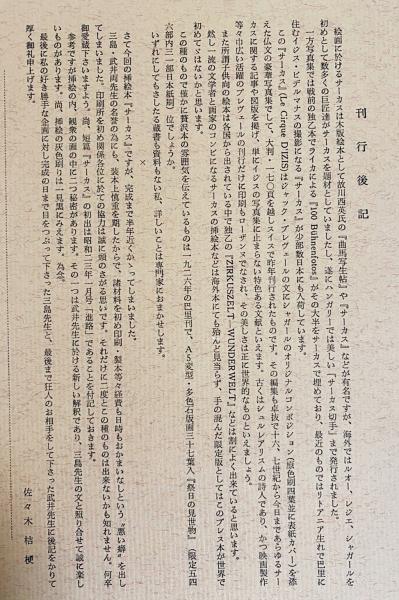 刊行後記
絵画に於けるサーカスは木版絵本として故川西英氏の『曲馬写生帖』や『サーカス』などが有名ですが、海外ではルオー、レジェ、シャガールを
初めとして数多くの巨匠達がサーカスを題材としていましたし、遂にハンガリーでは美しい『サーカス切手』まで発行されました。
一方写真集では戦前の独乙本でライカによる『100 Bühnenfotos』がその大半をサーカスで埋めており、最近のものではリトアニア生れで巴里に
住むイジス・ビダルマナスの撮影になる『サーカス』が少部数日本にも入荷しています。
この『サーカス』(Le Cirque D'IZIS)はジャック・プレヴェールの文にシャガールのオリジナルコンポジション(原色刷四葉並に表紙カバー)を添
えた仏文の豪華写真集でして、大判・一七〇頁を越しスイスで昨年刊行されたものです。その編集も卓抜で十六、七世紀から今日まであらゆるサー
カスに関する記事や図版を掲げ、単にイジスの写真集に止まらない特色ある文献といえます。古くはシュルレアリスムの詩人であり、かつ映画製作
等々巾広い活躍のプレヴェールの刊行だけに印刷もローザンヌでなされ、その美しさは正に世界的なものといえましょう。
また所謂子供向の絵本は各国から出されている中で独乙の『ZIRKUSZELT—WUNDERWELT』などは割によく出来ていると思います。
然し一流の文学者と画家のコンビになるサーカスの挿絵本などは海外本にても殆んど見当らず、手の混んだ限定版としてはこのプレス本が世界で
初めてゞはないかと思います。
この種のもので僅かに贅沢本の雰囲気を伝えているものは一九二六年の巴里刊で、A5変型・多色石版画三十七葉入『祭日の見世物』(限定五四
六部内三一部日本紙刷)位でしょうか。
いずれにしてもさしたる蔵書も資料もない私、詳しいことは専門家におまかせします。
×
さて今回の挿絵本『サーカス』ですが、完成まで半年近くかゝってしまいました。
三島・武井両先生の名誉の為にも、装本上慎重を期したからで、諸材料を初め印刷・製本等々経費も日時もおかまいなしという〝悪い癖〟を出し
てしまいました。印刷所を初め関係各位に於ての協力は誠に頭のさがる思いです。それだけに二度とこの種のものは出来ないかも知れません。何卒
御愛蔵下さいますよう。尚、短篇『サーカス』の初出は昭和二三年一月号「進路」であることを付記しておきます。
参考ですが挿絵の内、観衆の面の中に二つ秘密があります。その一つは武井先生に於ける新しい解釈であり、三島先生の文と照り合せて誠に楽し
いものがあります。尚、挿絵の灰色刷りは一見黒にみえます。為念。
最後に私の好き勝手な企画に対し完成の日まで目をつぶって下さった三島先生と、最後まで狂人のお相手をして下さった武井先生に後記をかりて
厚く御礼申上げます。
佐々木桔梗